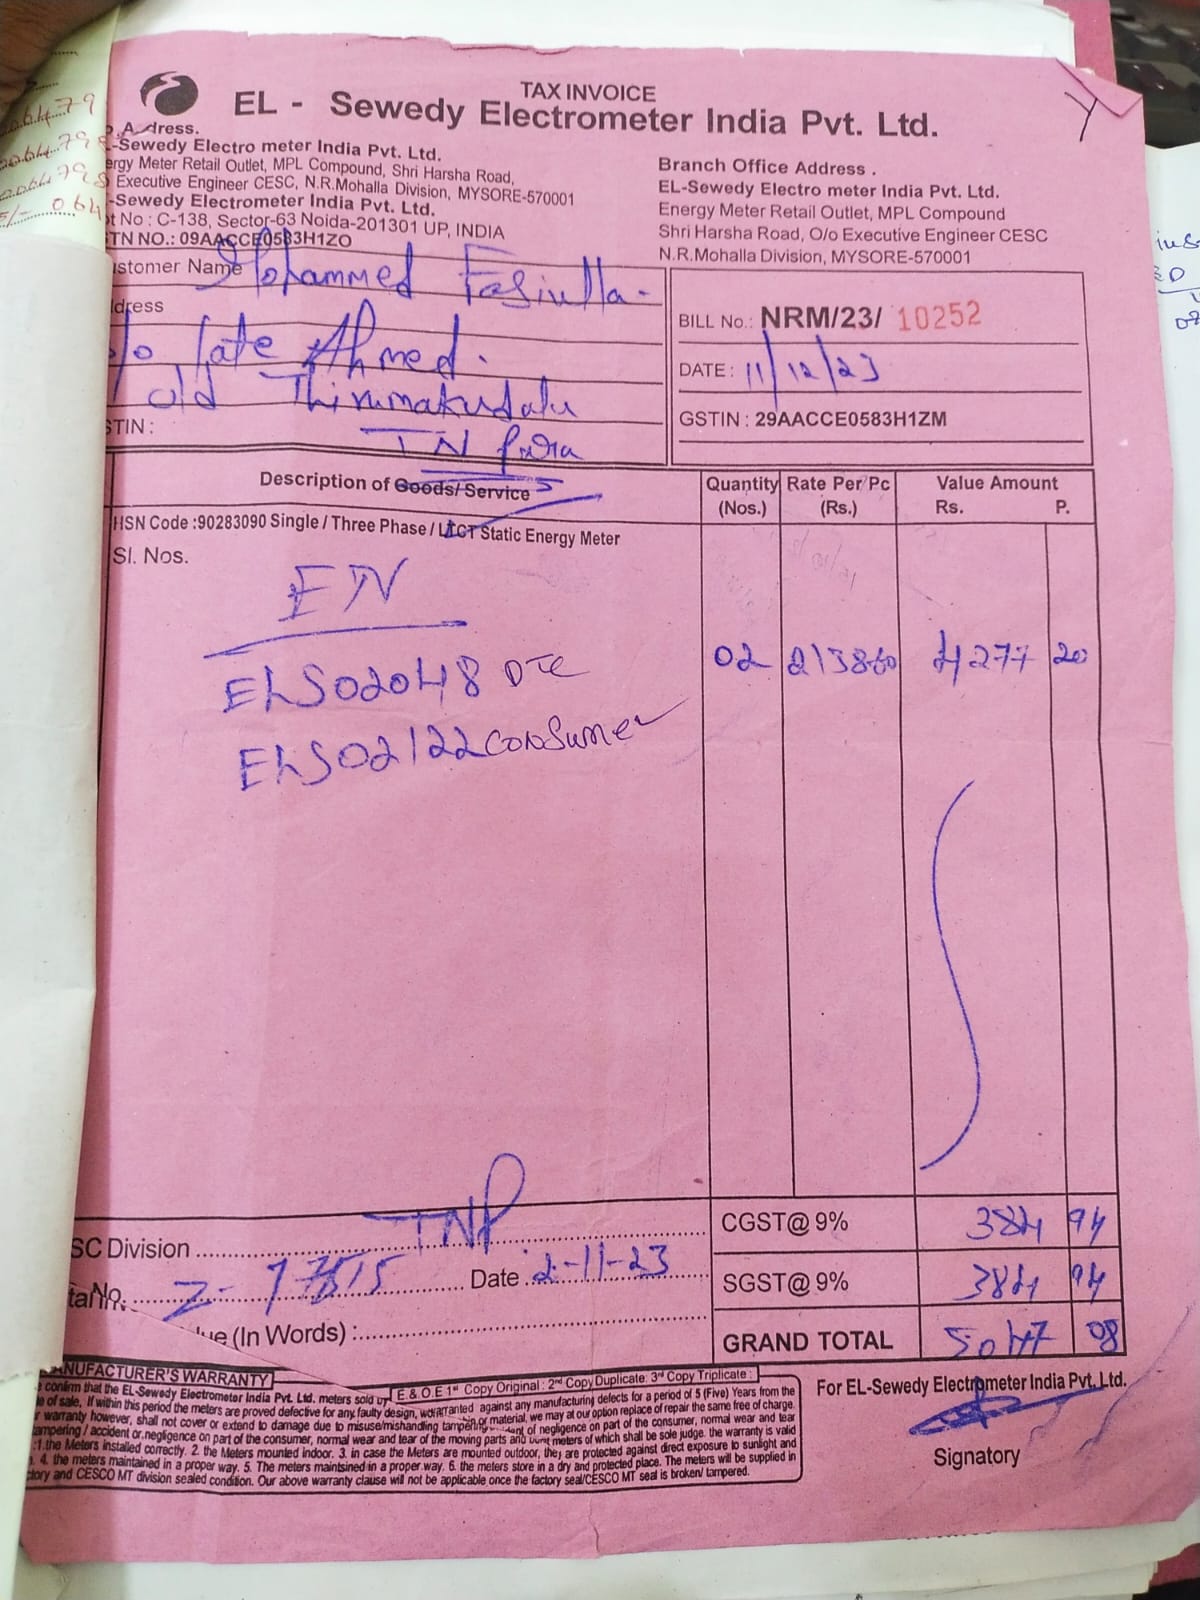 TAX INVOICE
EL - Sewedy Electrometer India Pvt. Ltd.
Adress.
-Sewedy Electro meter India Pvt. Ltd.
ergy Meter Retail Outlet, MPL Compound, Shri Harsha Road,
Executive Engineer CESC, N.R.Mohalla Division, MYSORE-570001
-Sewedy Electrometer India Pvt. Ltd.
t No : C-138, Sector-63 Noida-201301 UP, INDIA
TN NO.: 09AACCE0583H1ZO
Branch Office Address .
EL-Sewedy Electro meter India Pvt. Ltd.
Energy Meter Retail Outlet, MPL Compound
Shri Harsha Road, O/o Executive Engineer CESC
N.R.Mohalla Division, MYSORE-570001
ustomer Name Mohammed Fasiulla -
ddress
/o late Ahmed.
old Thirumakudalu
STIN : TN Pura
BILL No.: NRM/23/ 10252
DATE : 11/12/23
GSTIN : 29AACCE0583H1ZM
Description of Goods/ Service
Quantity (Nos.)
Rate Per Pc (Rs.)
Value Amount
Rs. P.
HSN Code :90283090 Single / Three Phase / LTCT Static Energy Meter
Sl. Nos.
ELS02048 DTC
02 213860 4277 20
ELS02122 Consumer
SC Division TNP
CGST@ 9% 384 94
No. Date 2-11-23
SGST@ 9% 384 94
ue (In Words) :
GRAND TOTAL 5047 08
ANUFACTURER'S WARRANTY
E & O.E 1st Copy Original : 2nd Copy Duplicate: 3rd Copy Triplicate :
confirm that the EL-Sewedy Electrometer India Pvt. Ltd. meters sold by warranted against any manufacturing defects for a period of 5 (Five) Years from the
e of sale, If within this period the meters are proved defective for any faulty design, or material, we may at our option replace of repair the same free of charge.
warranty however, shall not cover or extend to damage due to misuse/mishandling tampering of negligence on part of the consumer, normal wear and tear
ampering / accident or negligence on part of the consumer, normal wear and tear of the moving parts and meters of which shall be sole judge. the warranty is valid
:1.the Meters installed correctly. 2. the Meters mounted indoor. 3. in case the Meters are mounted outdoor, they are protected against direct exposure to sunlight and
. 4. the meters maintained in a proper way. 5. The meters maintsined in a proper way. 6. the meters store in a dry and protected place. The meters will be supplied in
tory and CESCO MT division sealed condition. Our above warranty clause will not be applicable once the factory seal/CESCO MT seal is broken/ tampered.
For EL-Sewedy Electrometer India Pvt. Ltd.
Signatory